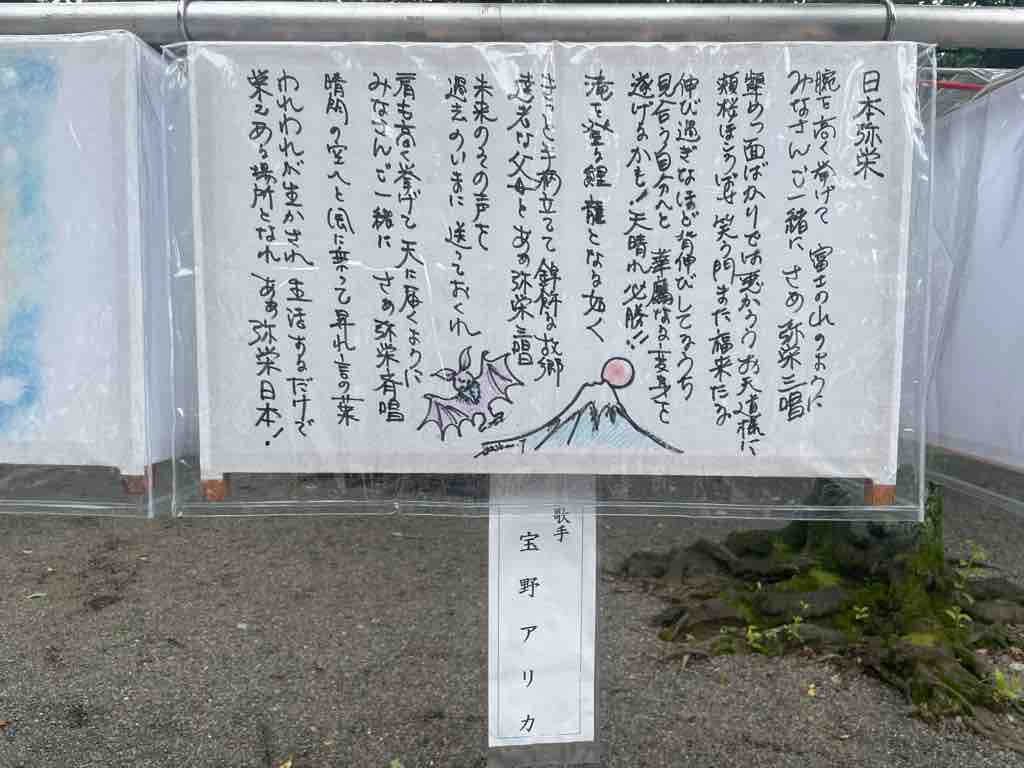 日本弥栄
腕を高く挙げて 富士の山のように
みなさんご一緒に さあ 弥栄三唱
顰めっ面ばかりでは悪かろう お天道様に
頬桜ほころばせ 笑う門 また福来たる
伸び過ぎなほど背伸びしてるうち
見合う自分へと 華麗なる変身を
遂げるかも!天晴れ必勝!!
滝を登る鯉 龍となる如く
きっと手柄立てて 錦飾る故郷
達者な父母と あゝ弥栄三唱
未来のその声を
過去のいまに 送っておくれ
肩も高く挙げて 天に届くように
みなさんご一緒に さあ 弥栄斉唱
晴朗の空へと 風に乗って 昇れ言の葉
われわれが生かされ 生活あるだけで
栄えある場所となれ あゝ 弥栄日本!
歌手
宝野アリカ